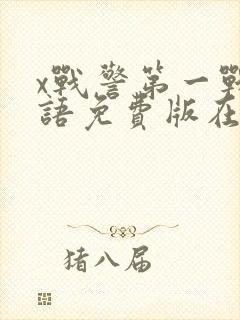 x戰警第一戰
語免費版在
猪八届